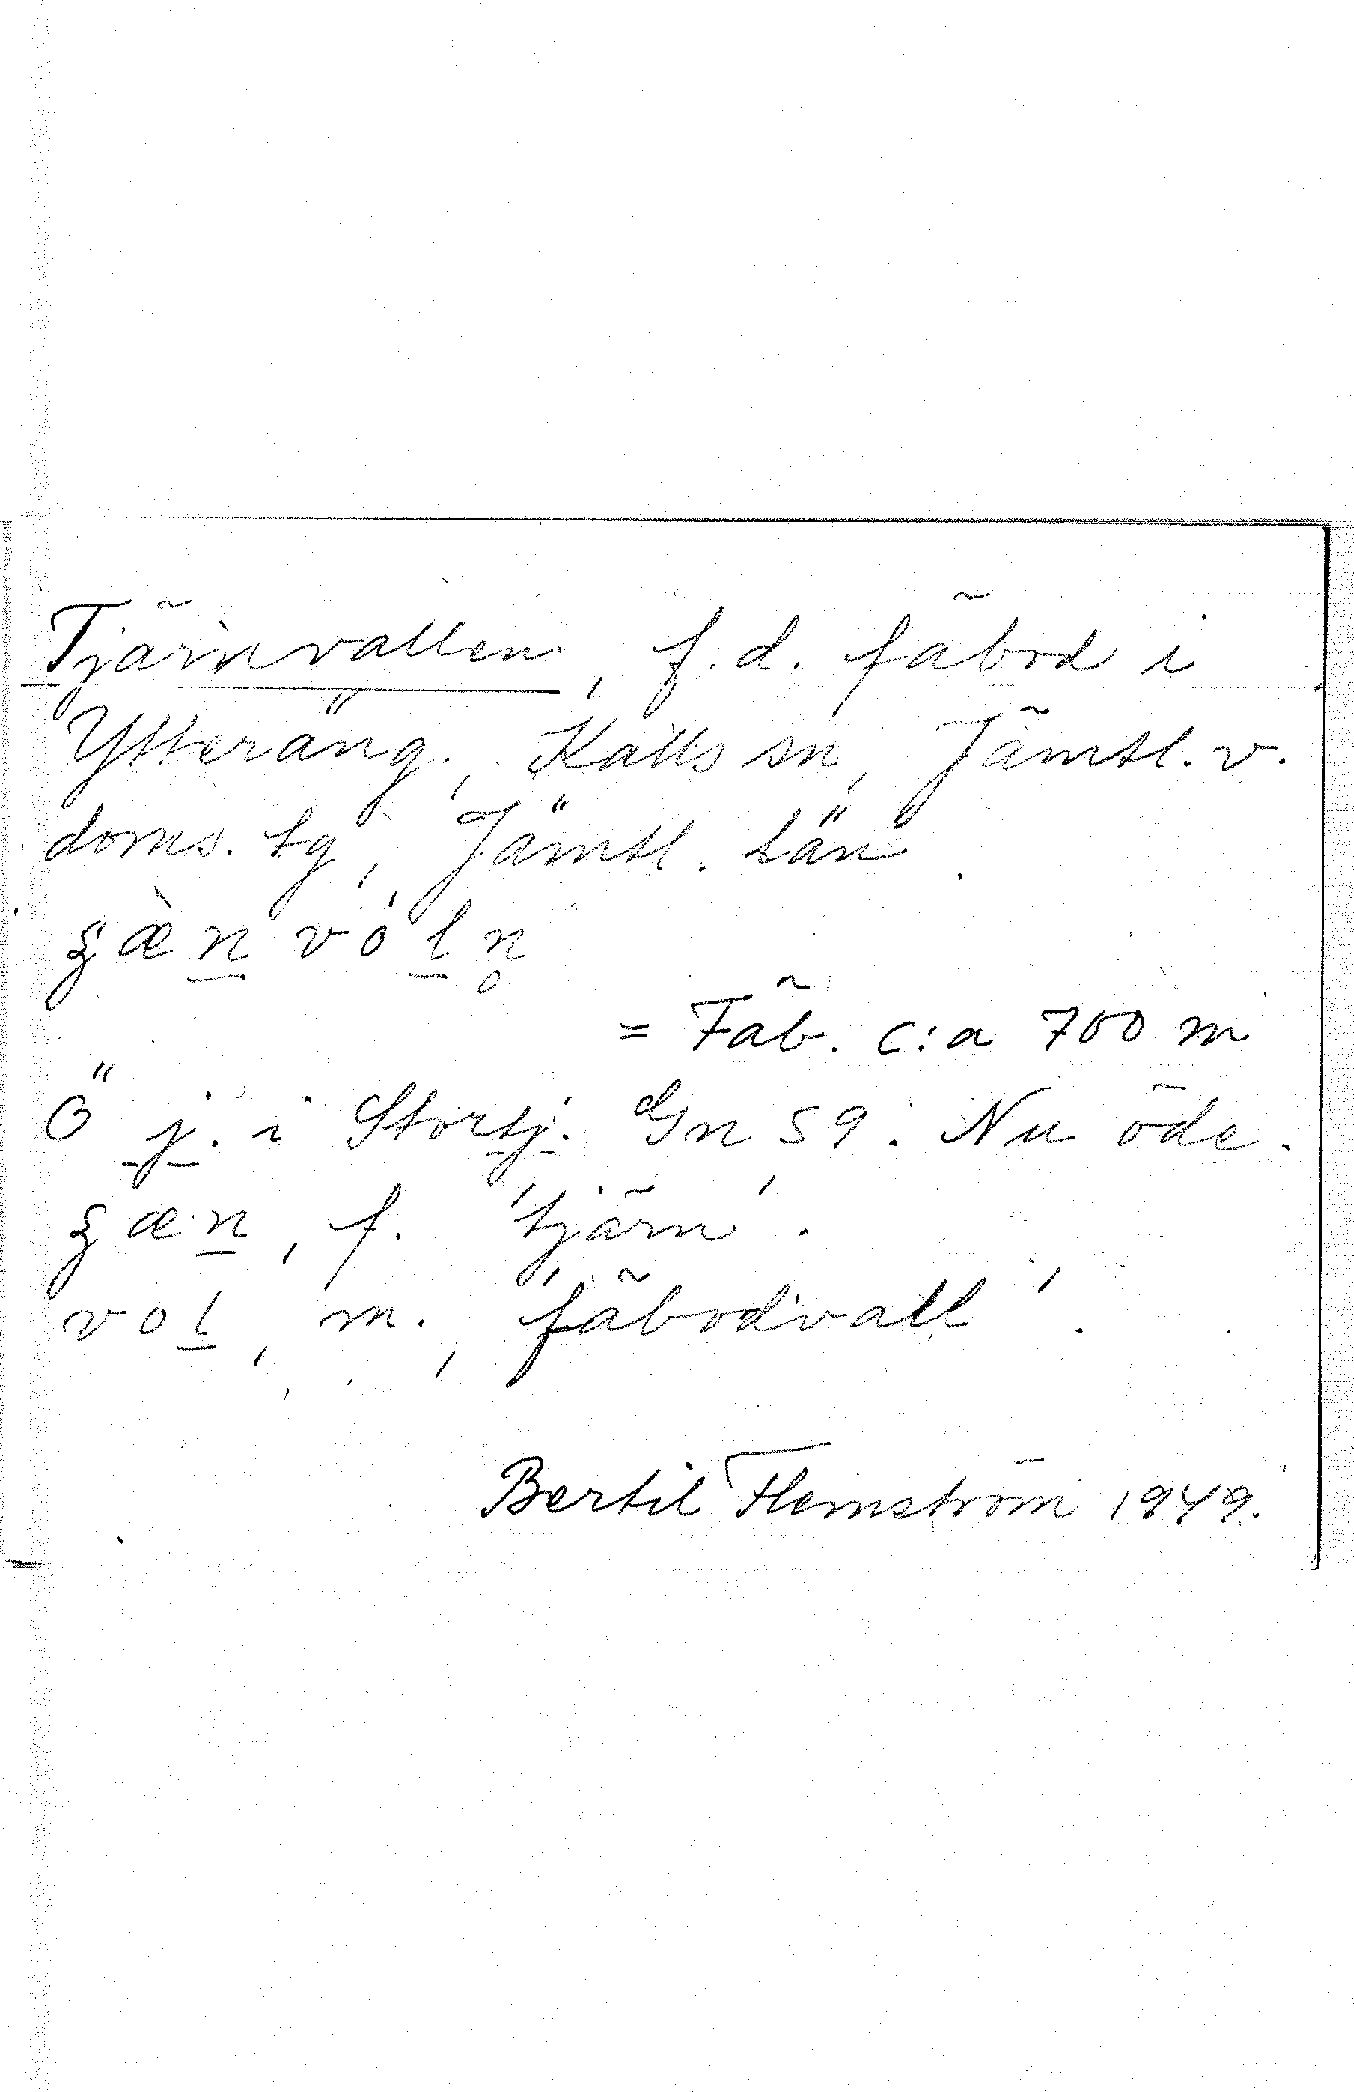 Tjärnvallen, f.d. fäbod i
Ytteräng, Kalls sn, Jämtl. v.
doms. tg, Jämtl. län.
ʂæ̀n vól n̥
= Fäb. c:a 700 m
Ö j. i Stortj. Gn 59. Nu öde.
ʂæ·n, f. 'tjärn'.
vol, m., 'fäbodvall'.
Bertil Flemström 1949.